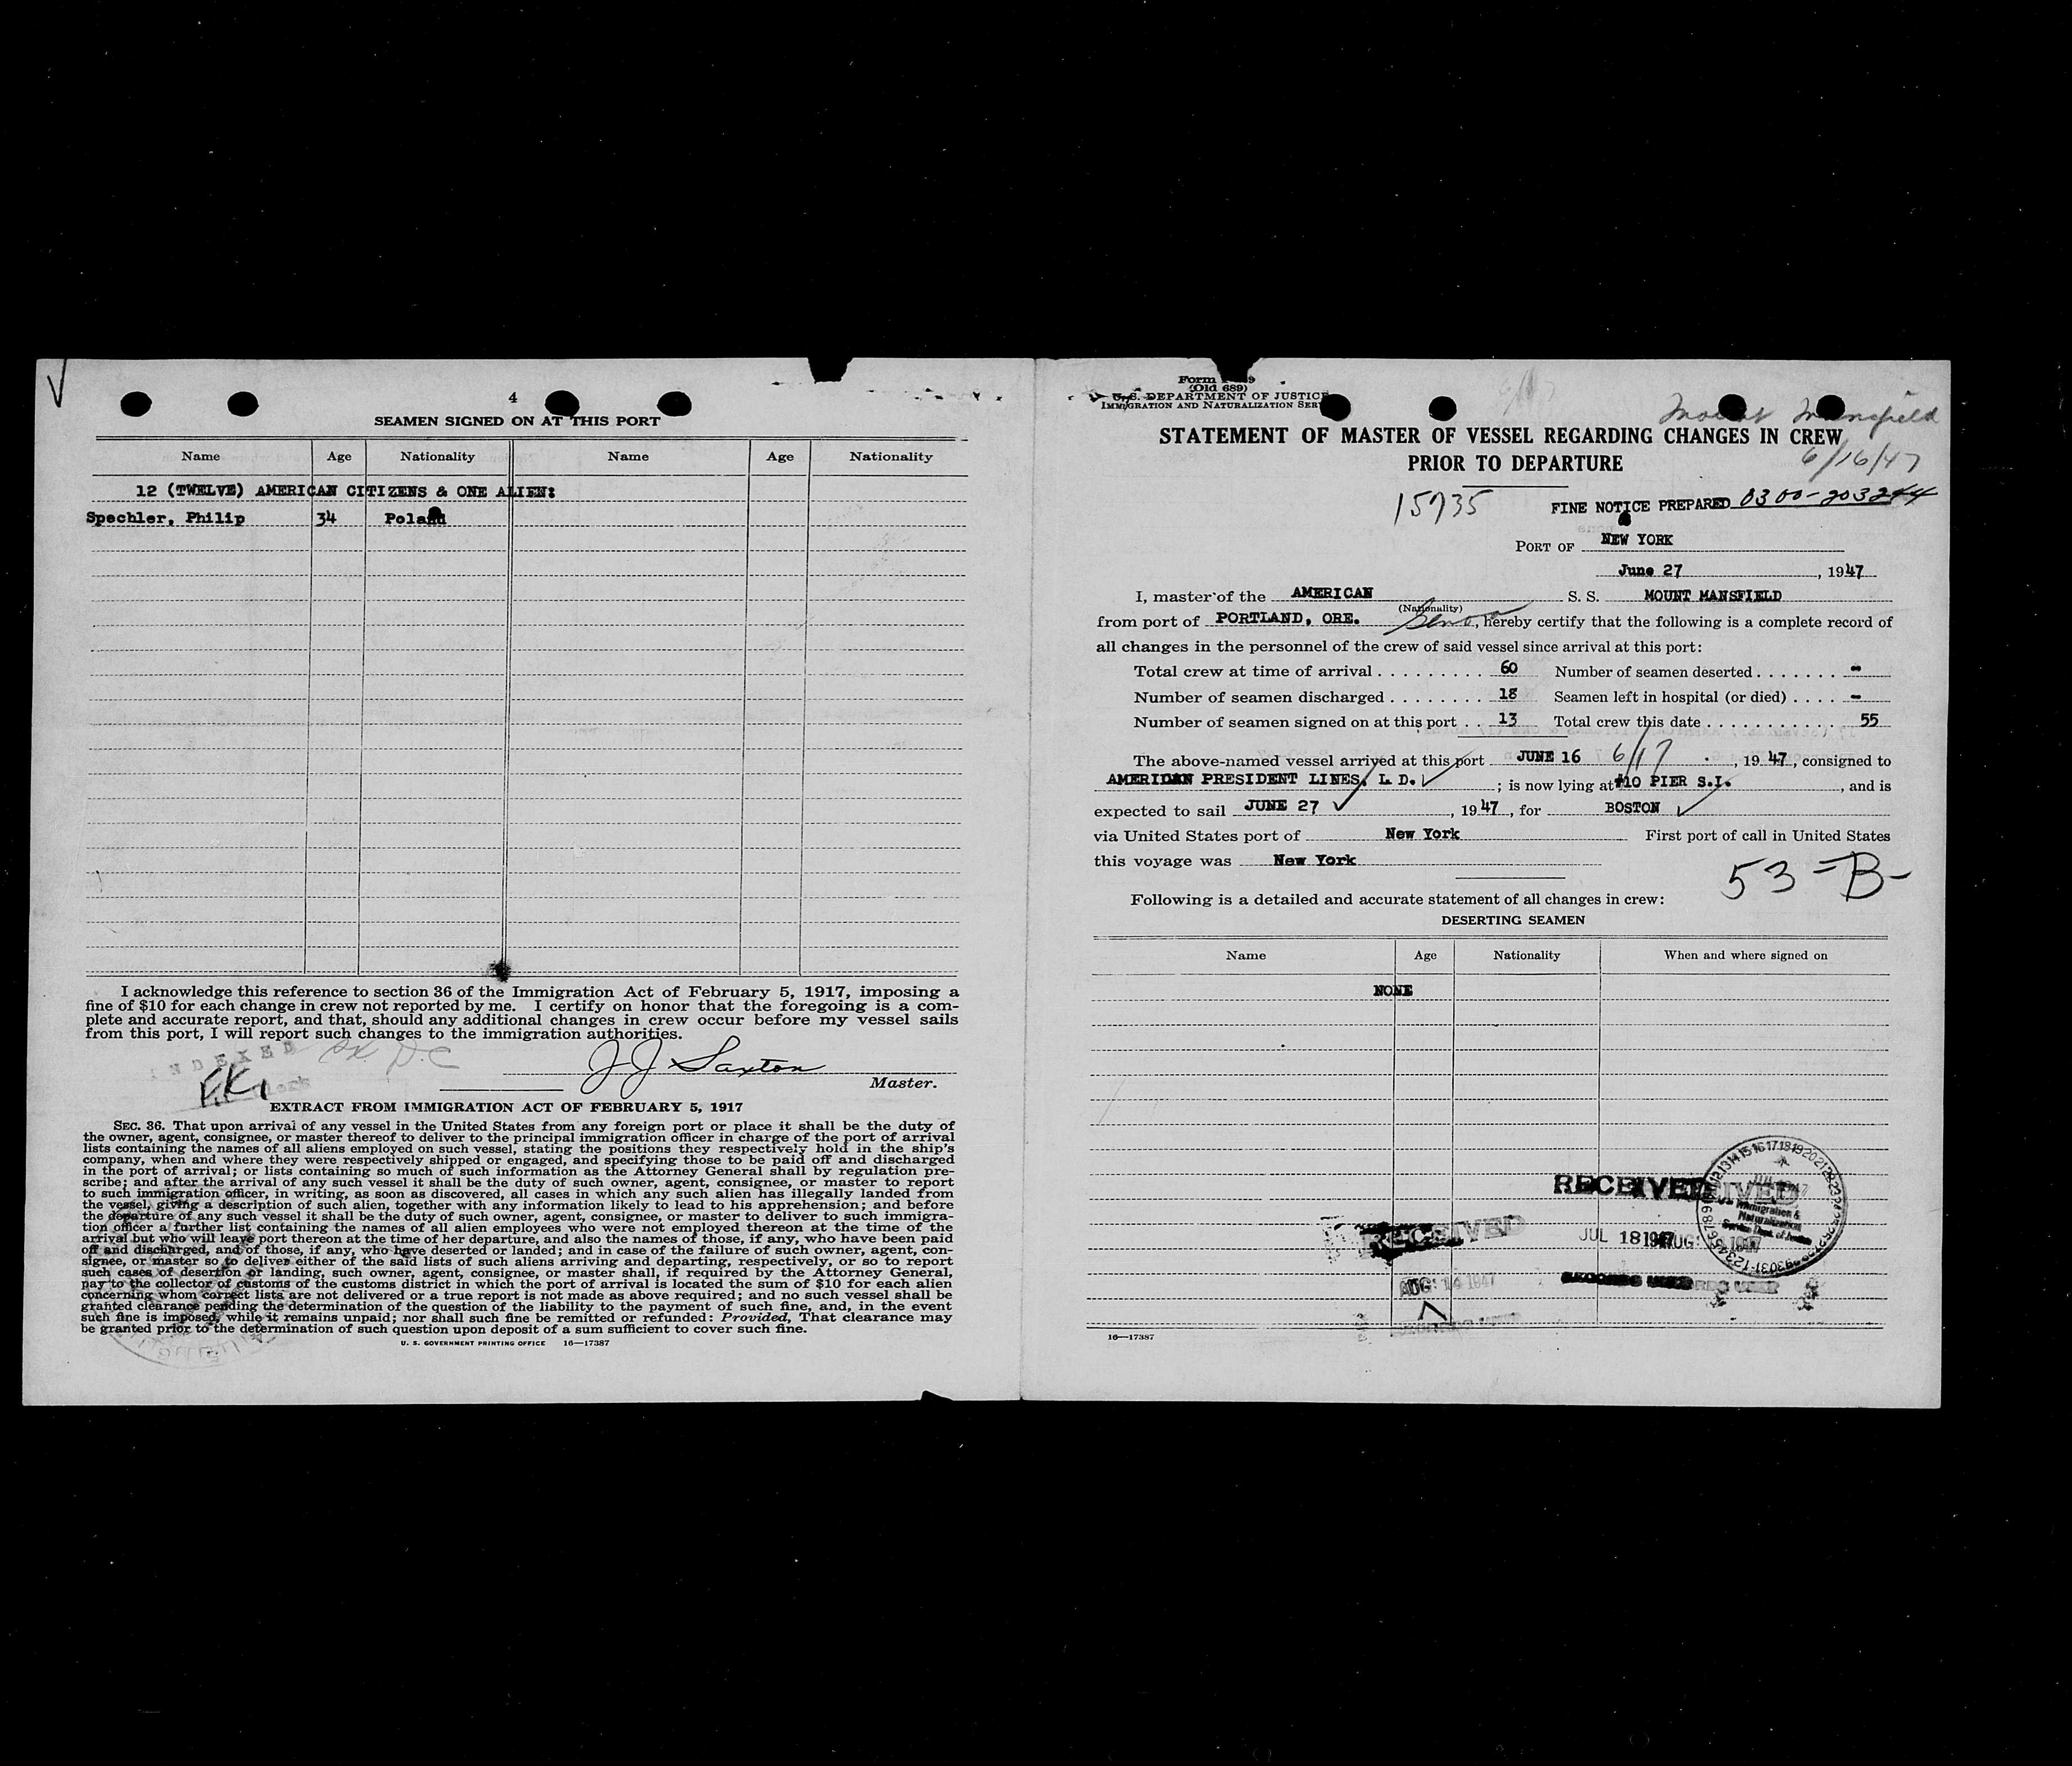 4
SEAMEN SIGNED ON AT THIS PORT
Name Age Nationality Name Age Nationality
12 (TWELVE) AMERICAN CITIZENS & ONE ALIEN:
Spechler, Philip 34 Poland
I acknowledge this reference to section 36 of the Immigration Act of February 5, 1917, imposing a
fine of $10 for each change in crew not reported by me. I certify on honor that the foregoing is a com-
plete and accurate report, and that, should any additional changes in crew occur before my vessel sails
from this port, I will report such changes to the immigration authorities.
INDEXED
J J Saxton
Master.
EXTRACT FROM IMMIGRATION ACT OF FEBRUARY 5, 1917
SEC. 36. That upon arrival of any vessel in the United States from any foreign port or place it shall be the duty of
the owner, agent, consignee, or master thereof to deliver to the principal immigration officer in charge of the port of arrival
lists containing the names of all aliens employed on such vessel, stating the positions they respectively hold in the ship's
company, when and where they were respectively shipped or engaged, and specifying those to be paid off and discharged
in the port of arrival; or lists containing so much of such information as the Attorney General shall by regulation pre-
scribe; and after the arrival of any such vessel it shall be the duty of such owner, agent, consignee, or master to report
to such immigration officer, in writing, as soon as discovered, all cases in which any such alien has illegally landed from
the vessel, giving a description of such alien, together with any information likely to lead to his apprehension; and before
the departure of any such vessel it shall be the duty of such owner, agent, consignee, or master to deliver to such immigra-
tion officer a further list containing the names of all alien employees who were not employed thereon at the time of the
arrival but who will leave port thereon at the time of her departure, and also the names of those, if any, who have been paid
off and discharged, and of those, if any, who have deserted or landed; and in case of the failure of such owner, agent, con-
signee, or master so to deliver either of the said lists of such aliens arriving and departing, respectively, or so to report
such cases of desertion or landing, such owner, agent, consignee, or master shall, if required by the Attorney General,
pay to the collector of customs of the customs district in which the port of arrival is located the sum of $10 for each alien
concerning whom correct lists are not delivered or a true report is not made as above required; and no such vessel shall be
granted clearance pending the determination of the question of the liability to the payment of such fine, and, in the event
such fine is imposed, while it remains unpaid; nor shall such fine be remitted or refunded: Provided, That clearance may
be granted prior to the determination of such question upon deposit of a sum sufficient to cover such fine.
U. S. GOVERNMENT PRINTING OFFICE 16—17387
Form
(Old 689)
U. S. DEPARTMENT OF JUSTICE
IMMIGRATION AND NATURALIZATION
Mount Mansfield
STATEMENT OF MASTER OF VESSEL REGARDING CHANGES IN CREW
PRIOR TO DEPARTURE
6/16/47
15735
FINE NOTICE PREPARED 0300-203244
PORT OF NEW YORK
June 27, 1947
I, master of the AMERICAN S. S. MOUNT MANSFIELD
(Nationality)
from port of PORTLAND, ORE. , hereby certify that the following is a complete record of
all changes in the personnel of the crew of said vessel since arrival at this port:
Total crew at time of arrival . . . . . . . . . 60 Number of seamen deserted . . . . . . . -
Number of seamen discharged . . . . . . . . 18 Seamen left in hospital (or died) . . . . -
Number of seamen signed on at this port . . 13 Total crew this date . . . . . . . . . . . 55
The above-named vessel arrived at this port JUNE 16 6/17, 1947, consigned to
AMERICAN PRESIDENT LINES, L D. ; is now lying at #10 PIER S.I. , and is
expected to sail JUNE 27, 1947, for BOSTON
via United States port of New York First port of call in United States
this voyage was New York
53-B-
Following is a detailed and accurate statement of all changes in crew:
DESERTING SEAMEN
Name Age Nationality When and where signed on
NONE
RECEIVED
RECEIVED
JUL 18 1947
AUG 14 1947
Immigration &
Naturalization
Service Dept. of Justice
16—17387